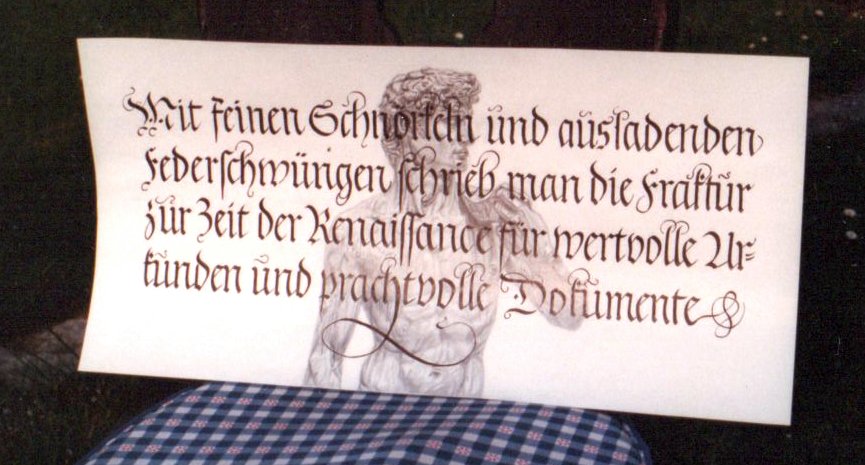 Mit feinen Schnörkeln und ausladenden
Federschwüngen schrieb man die Fraktur
zur Zeit der Renaissance für wertvolle Ur=
kunden und prachtvolle Dokumente